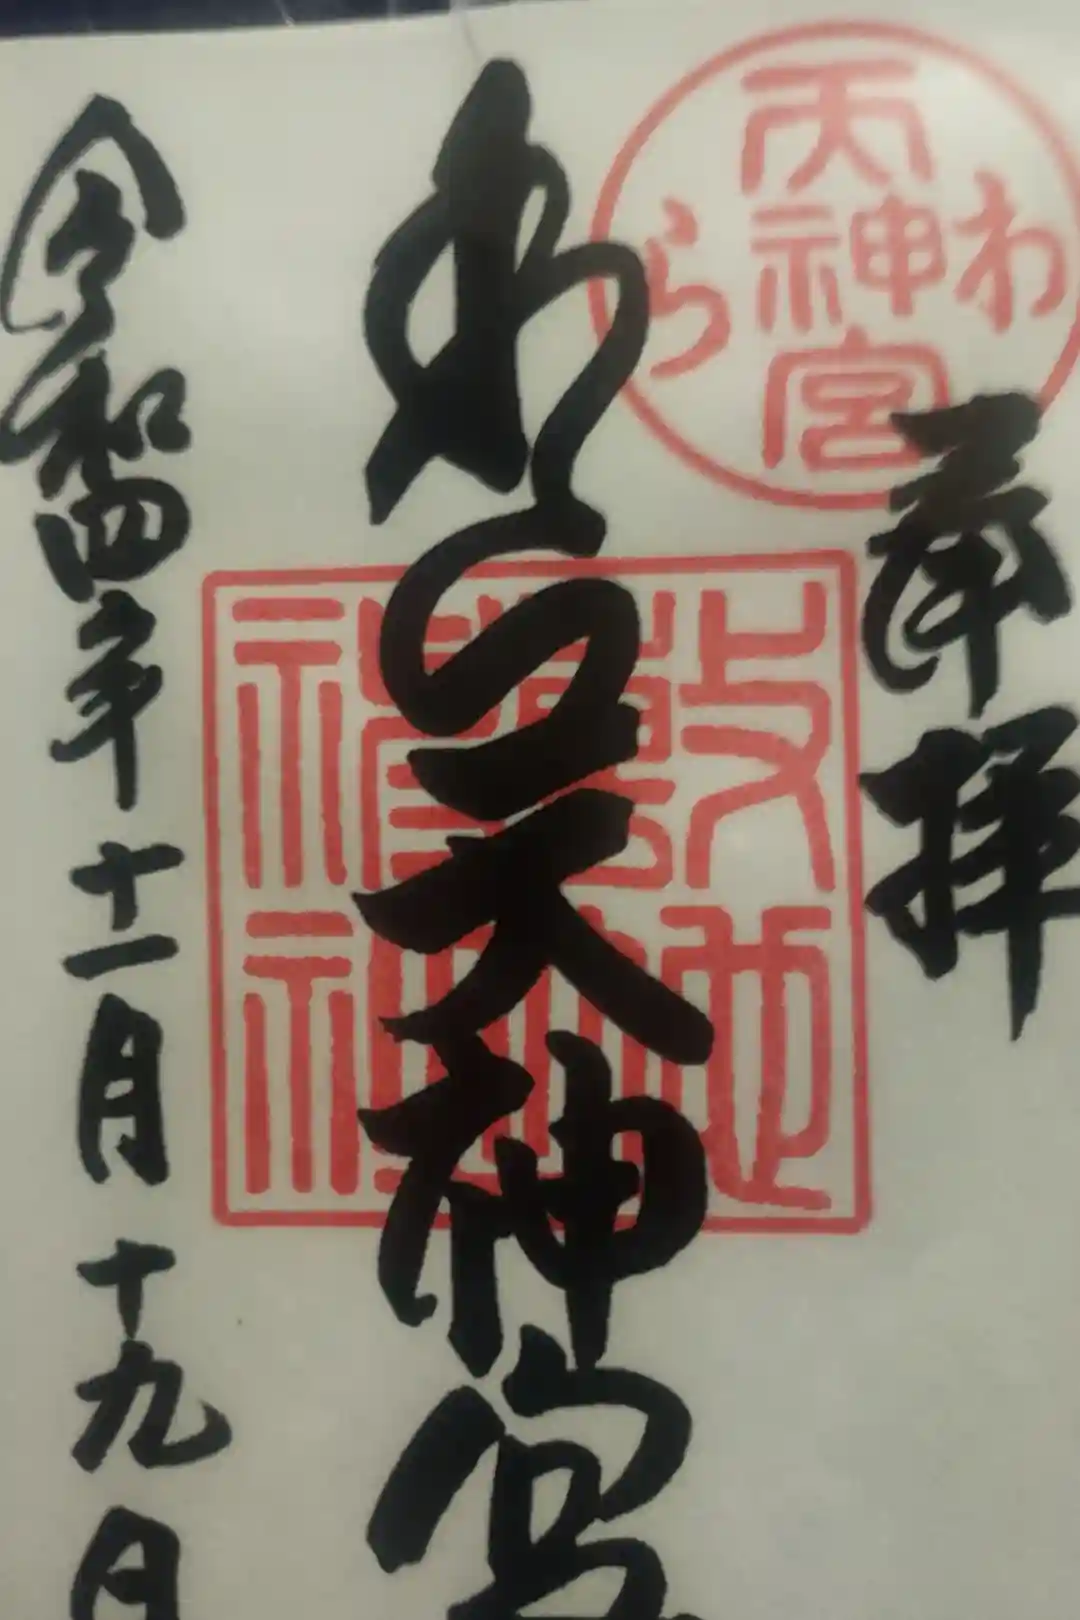 わら天神宮
奉拝
わら天神宮
敷地
令和四年十一月十九日